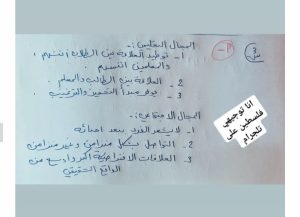 المجال التعليمي :-
1- توطيد العلاقة بين الطلاب أنفسهم ،
والمعلمين أنفسهم .
2- العلاقة بين الطالب والمعلم .
3- يوفر مبدأ التحفيز والترغيب
المجال الاجتماعي :-
1- لا يشعر الفرد ببعد أحبائه
2- التواصل بشكل متزامن وغير متزامن
3- العلاقات الافتراضية أكبر وأوسع من
الواقع الحقيقي
انا توجيهي
فلسطين على
تلجرام